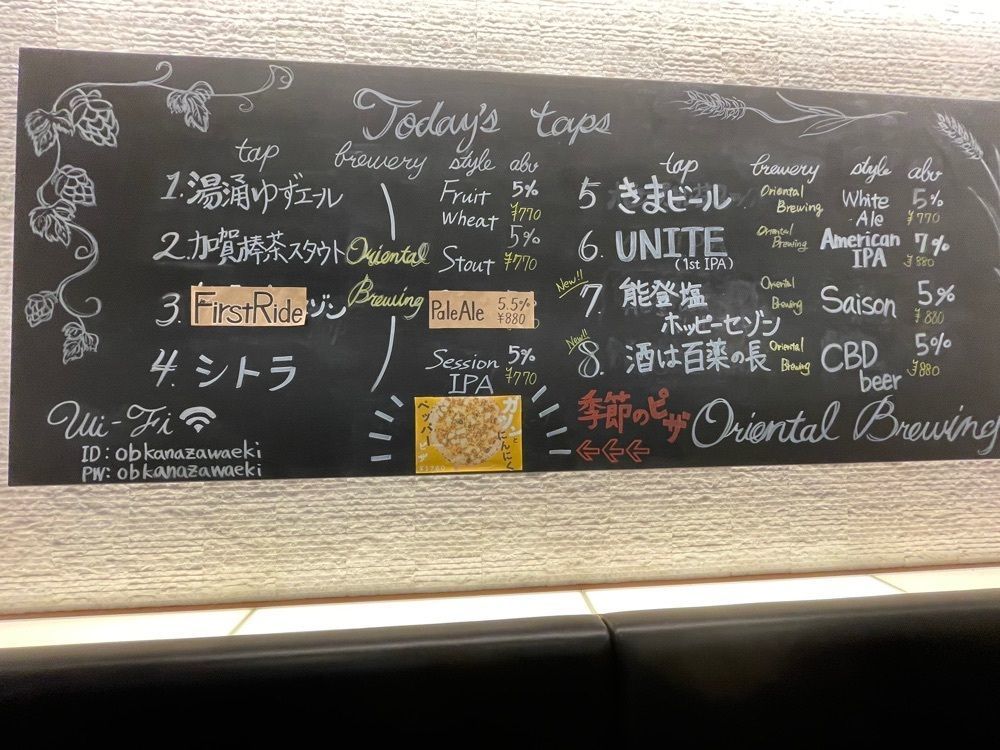 Today's taps
tap brewery style abv
1. 湯涌ゆずエール Fruit Wheat 5% ¥770
2. 加賀棒茶スタウト Stout 5% ¥770
Oriental Brewing
3. FirstRide ゾン PaleAle 5.5% ¥880
4. シトラ Session IPA 5% ¥770
tap brewery style abv
5 きまビール Oriental Brewing White Ale 5% ¥770
6. UNITE (1st IPA) Oriental Brewing American IPA 7% ¥880
New!!
7. 能登塩 ホッピーセゾン Oriental Brewing Saison 5% ¥880
New!!
8. 酒は百薬の長 Oriental Brewing CBD beer 5% ¥880
Wi-Fi
ID: obkanazawaeki
PW: obkanazawaeki
にんにく
ペッパー
季節のピザ
Oriental Brewing